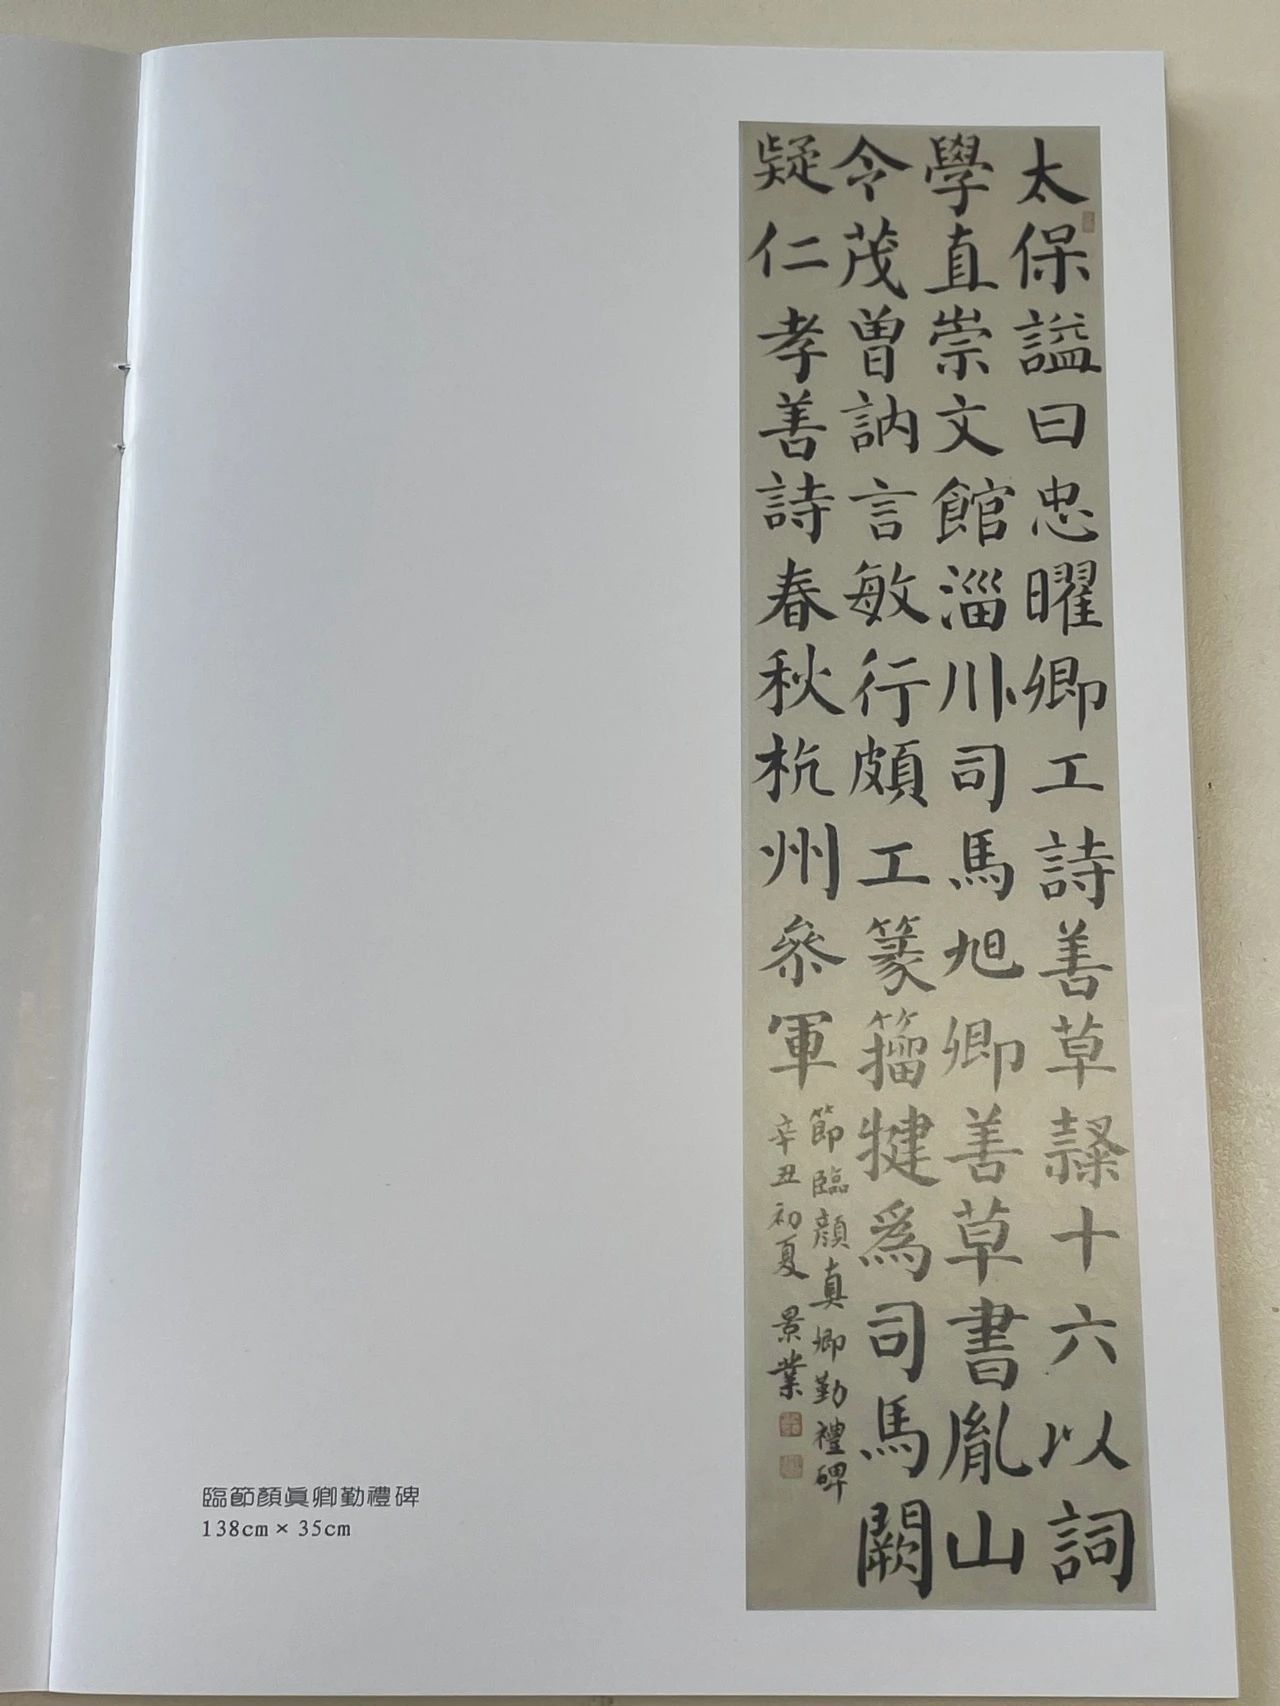 太保謚曰忠曜卿工詩善草隸十六以詞
學直崇文館淄川司馬旭卿善草書胤山
令茂曽訥言敏行頗工篆籀犍爲司馬闕
疑仁孝善詩春秋杭州參軍
節臨顔真卿勤禮碑
辛丑初夏 景業
臨節顏眞卿勤禮碑
138cm × 35cm